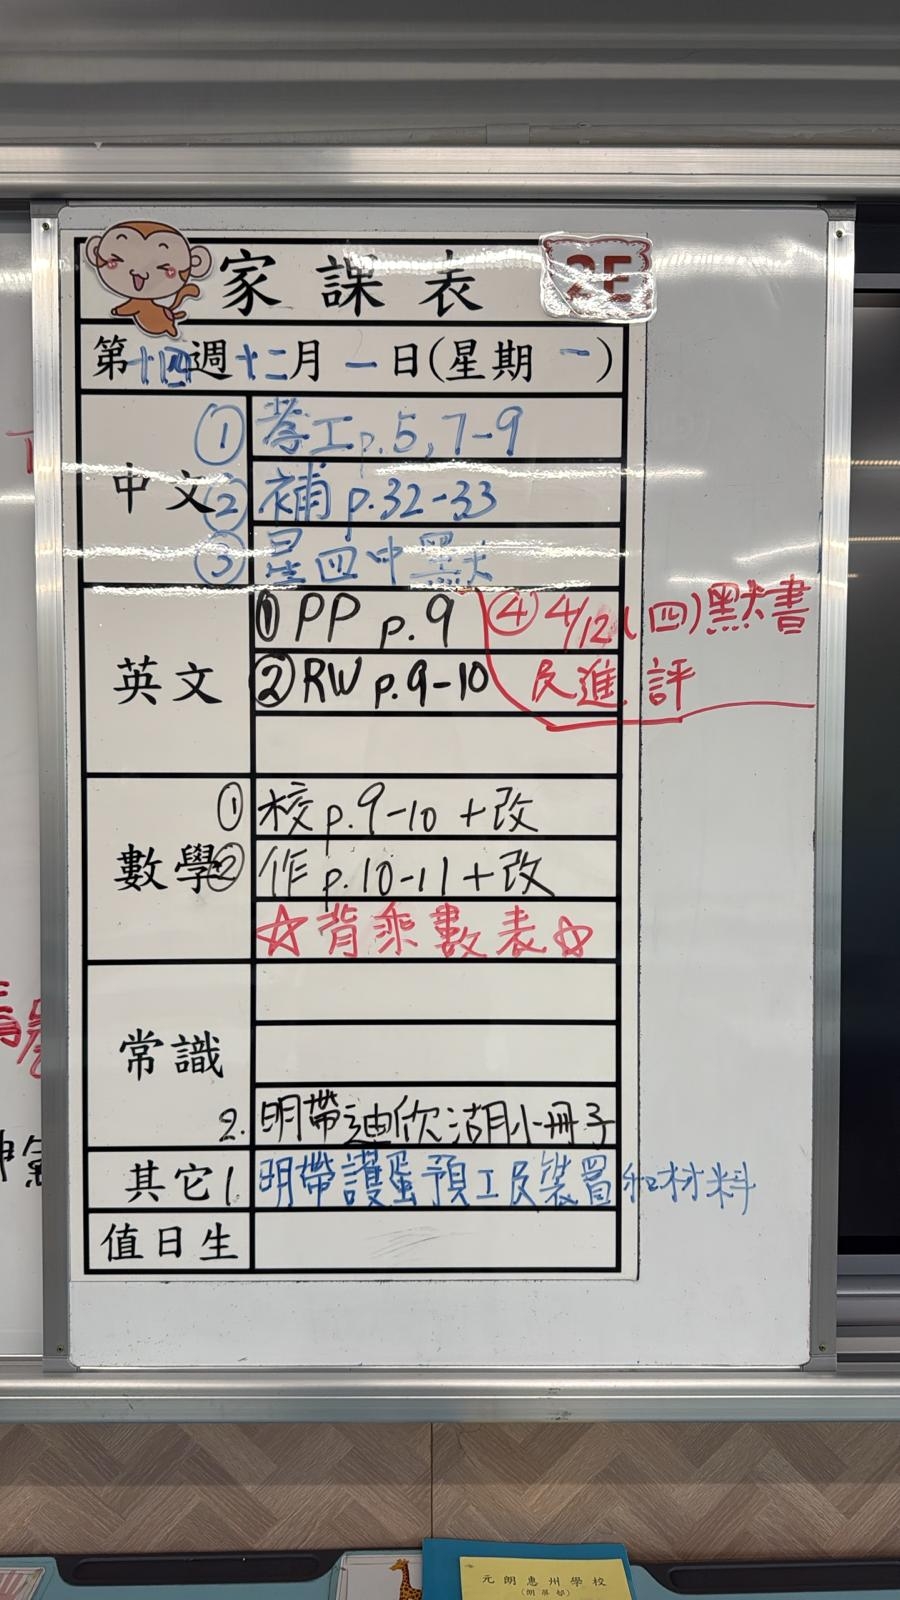 家課表 2E
第十四週十二月一日(星期一)
中文
① 工p.5,7-9
② 補p.32-33
③ 星四中默
英文
① PP p.9
② RW p.9-10
④ 4/12(四)默書
及進評
數學
① 校p.9-10+改
② 作p.10-11+改
☆背乘數表☆
常識
2. 明帶迪欣湖小冊子
其它
1. 明帶護蛋預工及裝置和材料
值日生
元朗惠州學校